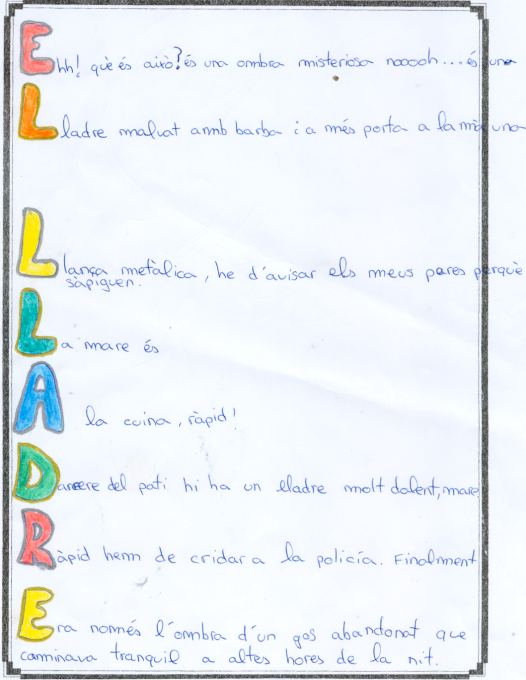 Ehh! què és això? és una ombra misteriosa nooooh... és una
Lladre malvat amb barba i a més porta a la mà una
Llança metàlica, he d'avisar els meus pares perquè
sàpiguen.
La mare és
A la cuina, ràpid!
Darrere del pati hi ha un lladre molt dolent, mare
Ràpid hem de cridar a la policía. Finalment
Era només l'ombra d'un gos abandonat que
caminava tranquil a altes hores de la nit.